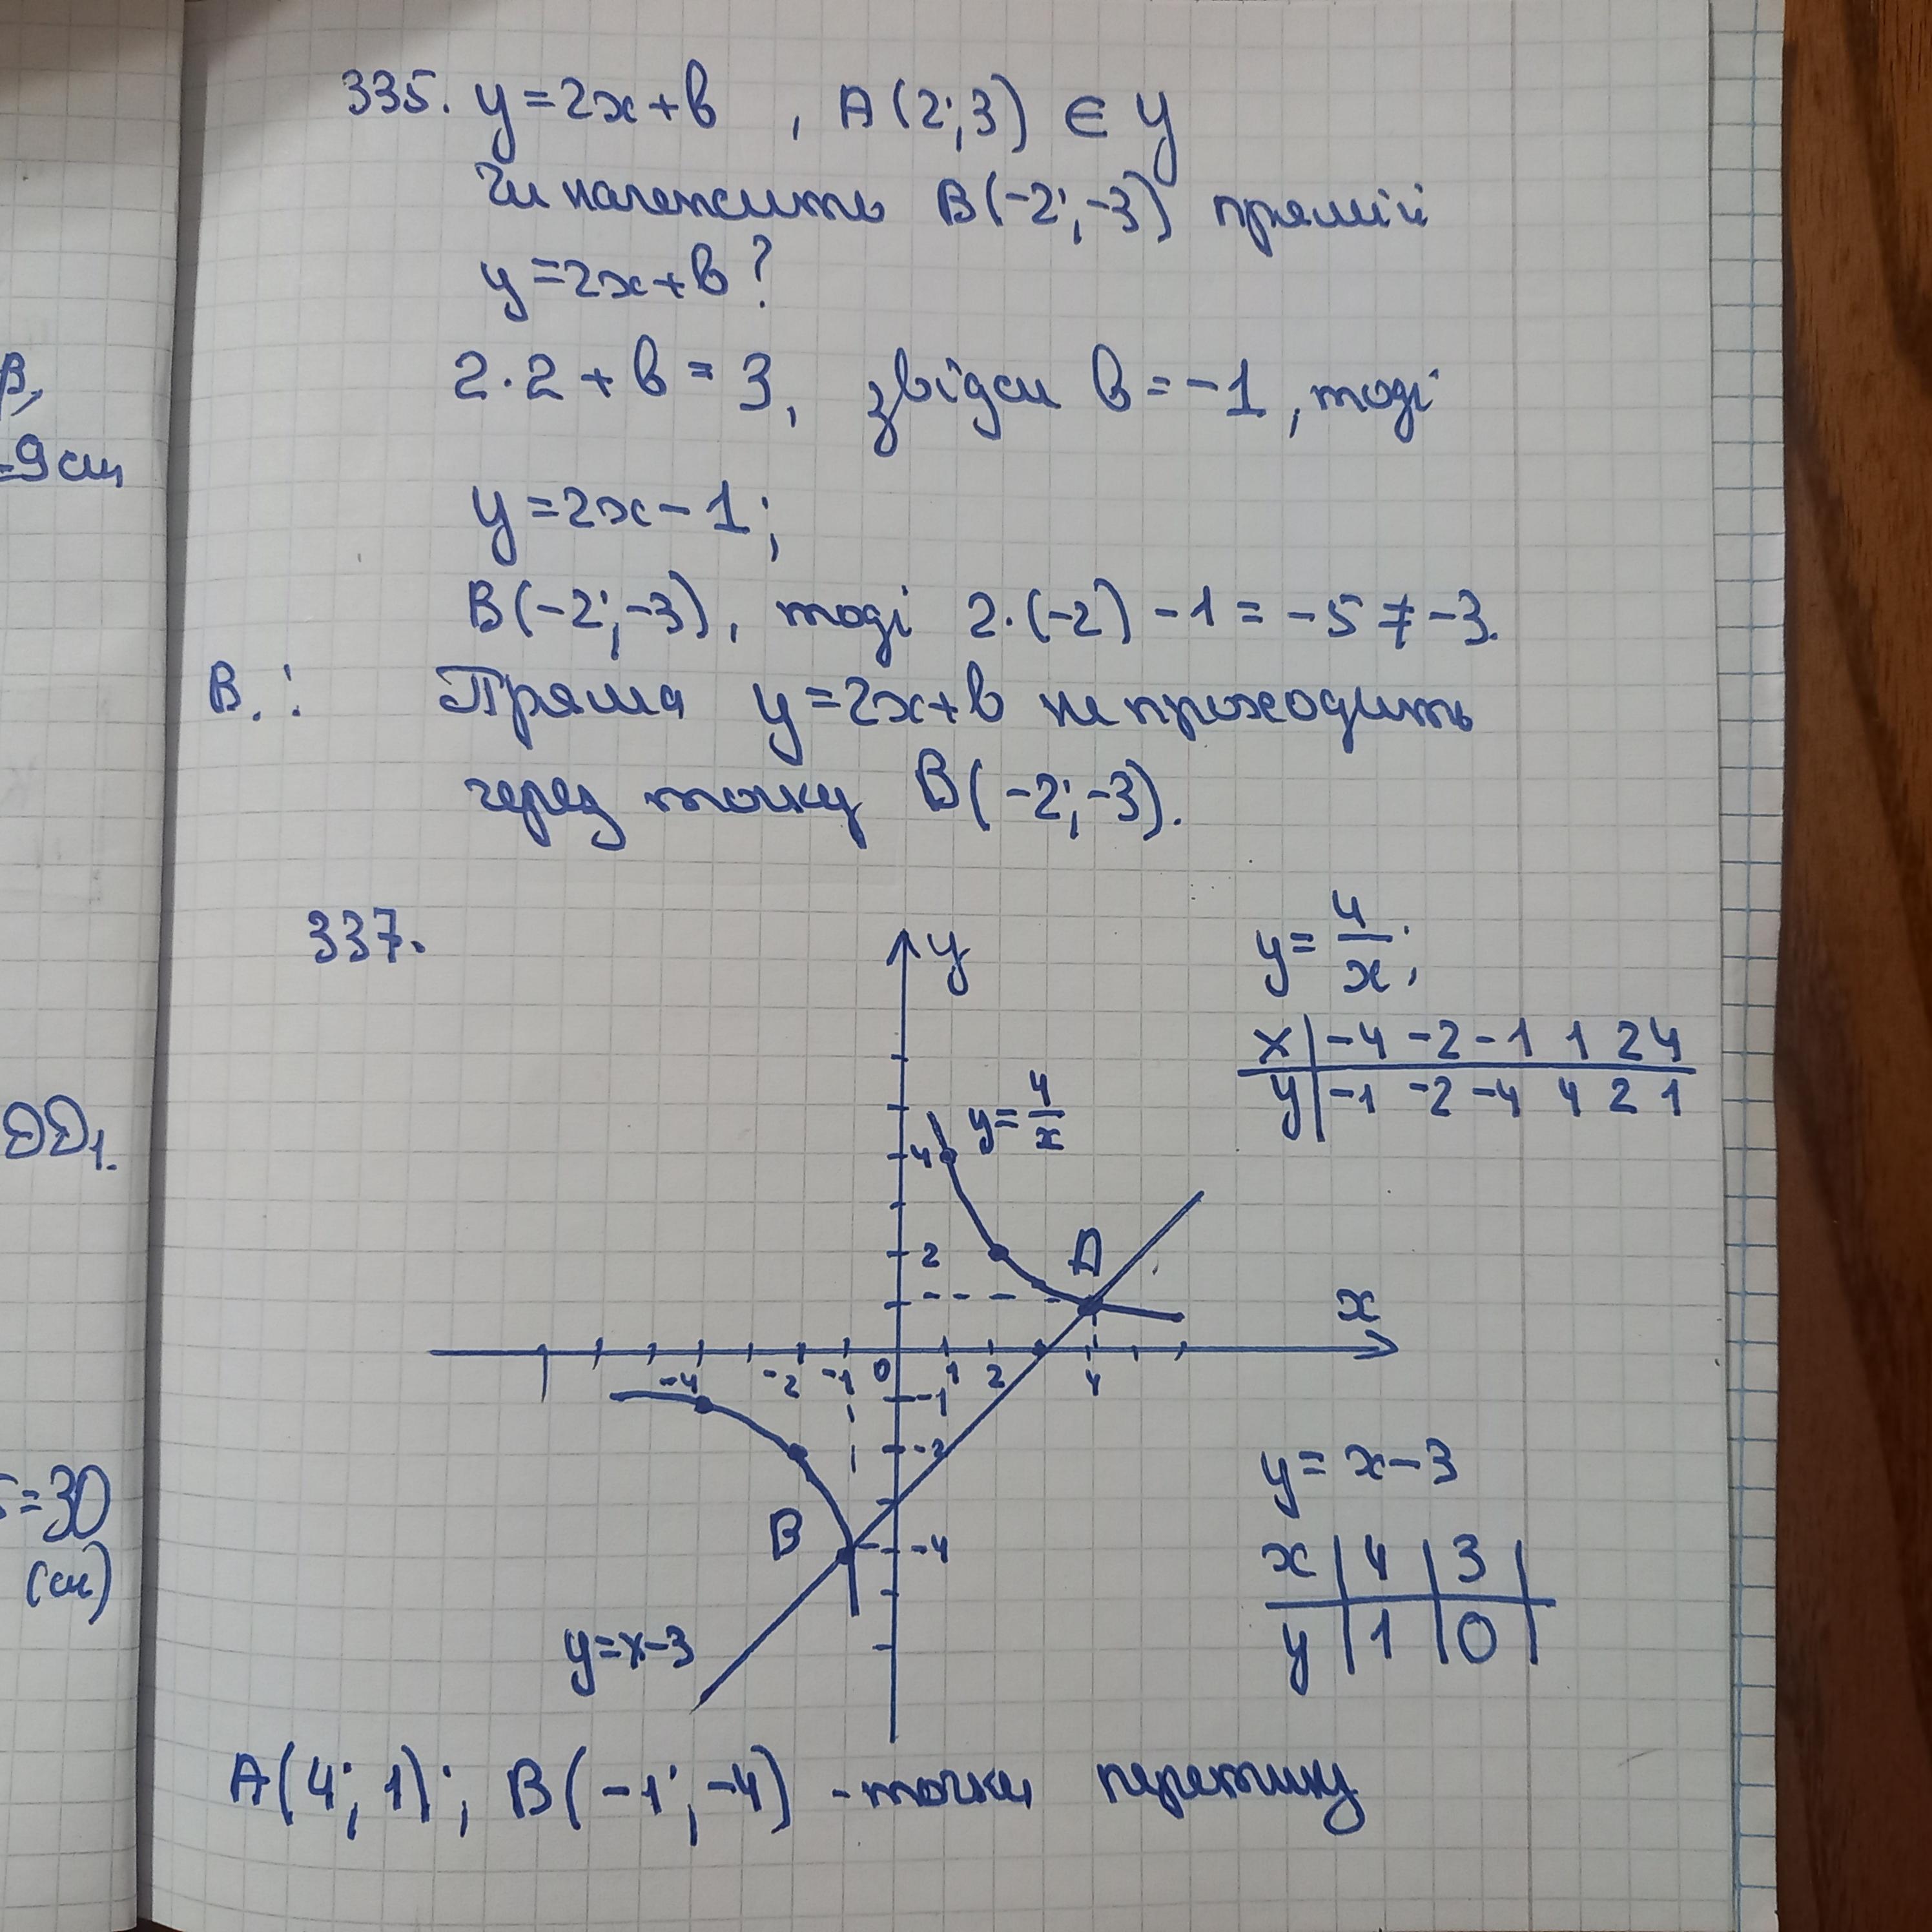 β,
-9 см
DD₁.
=30
(см)
335. y=2x+b , A(2;3) ∈ y
Чи належить B(-2;-3) прямій
y=2x+b?
2·2+b=3, звідси b=-1, тоді
y=2x-1;
B(-2;-3), тоді 2·(-2)-1=-5≠-3.
В.: Пряма y=2x+b не проходить
через точку B(-2;-3).
337.
y
y=4/x;
x | -4 -2 -1 1 2 4
y | -1 -2 -4 4 2 1
y=4/x
4
2
A
x
-4 -2 -1 0 1 2 4
-1
-2
B
-4
y=x-3
y=x-3
x | 4 | 3 |
y | 1 | 0 |
A(4;1); B(-1;-4) - точки перетину